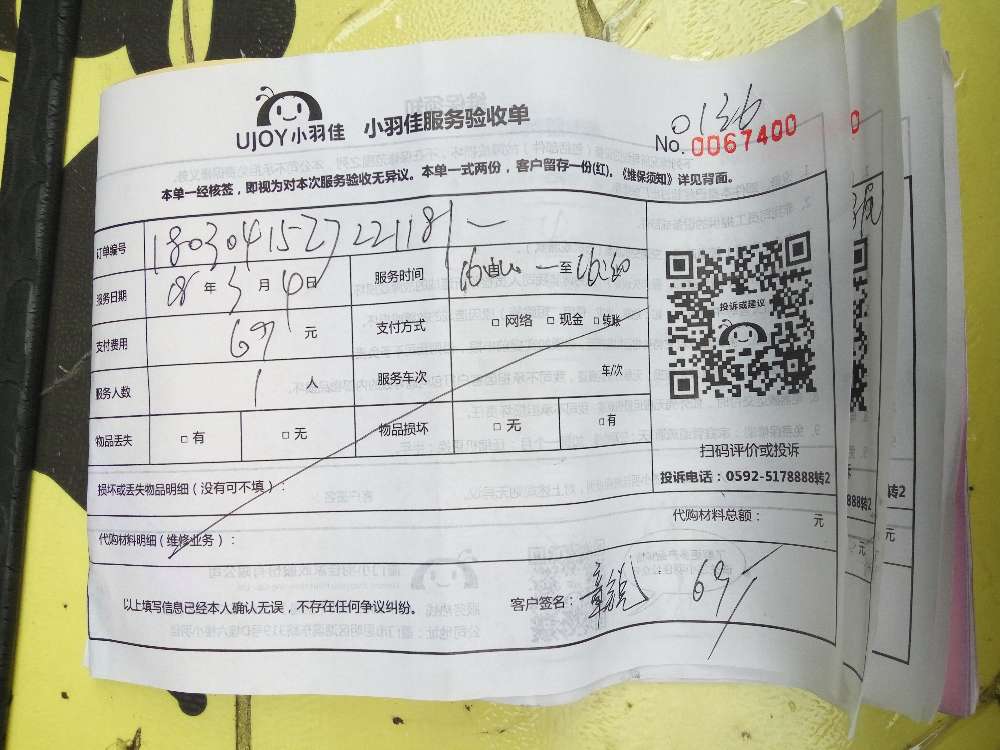 UJOY小羽佳 小羽佳服务验收单
0136
No. 0067400
本单一经核签，即视为对本次服务验收无异议。本单一式两份，客户留存一份(红)。《维保须知》详见背面。
订单编号 1803041527221181
服务日期 18 年 3 月 4 日 服务时间 至
支付费用 69 元 支付方式 □ 网络 □ 现金 □ 转账
服务人数 1 人 服务车次 车/次
物品丢失 □ 有 □ 无 物品损坏 □ 无 □ 有
投诉或建议
扫码评价或投诉
投诉电话：0592-5178888转2
损坏或丢失物品明细（没有可不填）：
代购材料明细（维修业务）：
代购材料总额： 元
以上填写信息已经本人确认无误，不存在任何争议纠纷。 客户签名： 69
0
8888转2
元
转2
元